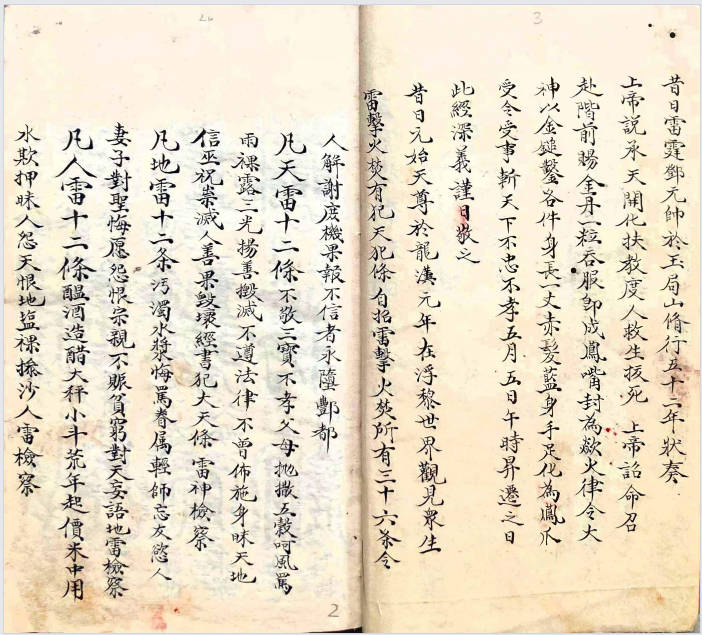 3
昔日雷霆鄧元帥於玉局山脩行五十二年狀奏
上帝説承天開化扶教度人救生拔死 上帝詔命召
赴階前賜金丹一粒吞服卽成鳳嘴封為歘火律令大
神以金鎚鑿各件身長一丈赤髮藍身手足化為鳳爪
受令受事斬天下不忠不孝五月五日午時昇遷之日
此經深義謹日敬之
昔日元始天尊於龍漢元年在浮黎世界觀見衆生
雷擊火焚有犯天犯條自招雷擊火焚所有三十六条令
人解謝庻機果報不信者永墮酆都
凡天雷十二條不敬三寶不孝父母抛撒五穀呵風罵
雨裸露三光揚善搬滅不遵法律不曾佈施身昧天地
信巫祝祟滅人善果毀壞經書犯大天條 雷神檢察
凡地雷十二条汚濁水漿悔罵眷属輕師忘友慾人
妻子對聖悔愿怨恨宗親不賑貧窮對天妄語地雷檢察
凡人雷十二條醖酒造醋大秤小斗荒年起價米中用
水欺押昧人怨天恨地塩裸搽沙人雷檢察
2